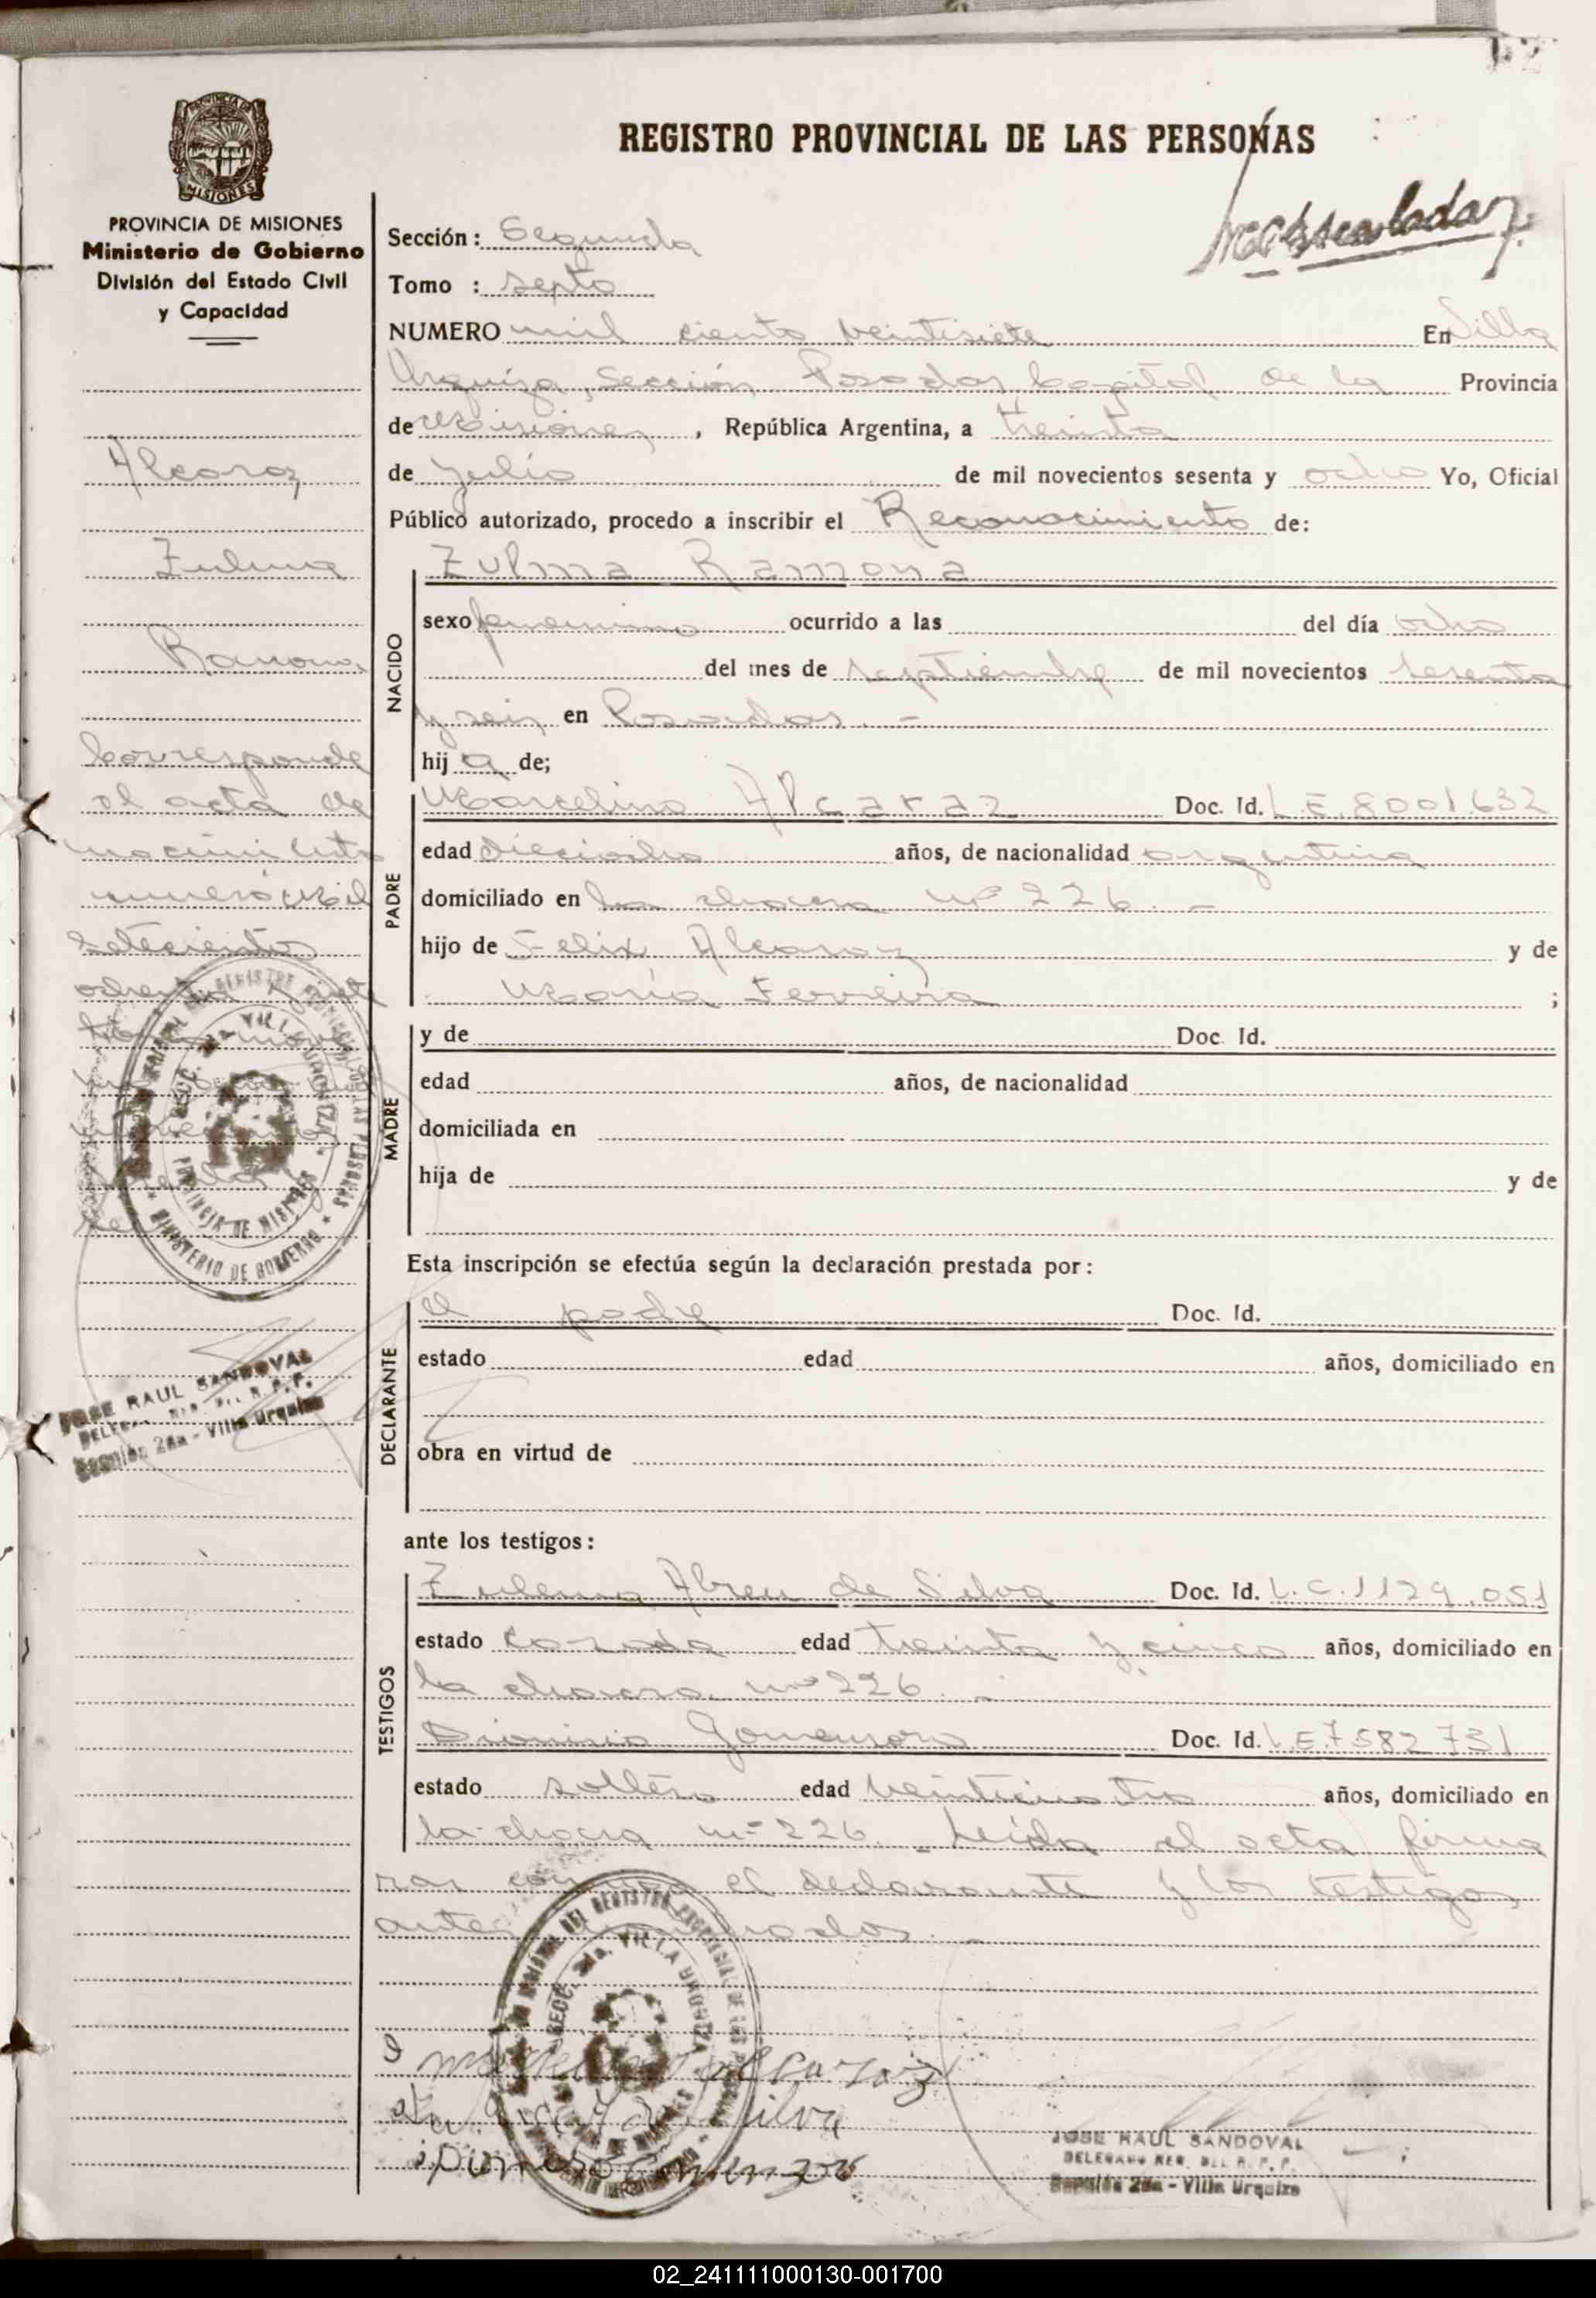 REGISTRO PROVINCIAL DE LAS PERSONAS
PROVINCIA DE MISIONES
MISIONES
PROVINCIA DE MISIONES
Ministerio de Gobierno
División del Estado Civil
y Capacidad
Alcaraz
Zulma
Ramona
Corresponde
al acta de
nacimiento
número Mil
Setecientos
ochenta y
JOSE RAUL SANDOVAL
Sección 2da - Villa Urquiza
Sección: Segunda
Tomo : septo
NUMERO mil ciento veintisiete En Villa
Urquiza, Sección Posadas Capital de la Provincia
de Misiones, República Argentina, a treinta
de Julio de mil novecientos sesenta y ocho Yo, Oficial
Público autorizado, procedo a inscribir el Reconocimiento de:
NACIDO
Zulma Ramona
sexo femenino ocurrido a las del día ocho
del mes de septiembre de mil novecientos sesenta
y seis en Posadas. -
hij a de;
PADRE
Marcelino Alcaraz Doc. Id. L.E. 8001632
edad dieciocho años, de nacionalidad argentina
domiciliado en la chacra nº 226. -
hijo de Felix Alcaraz y de
María Ferreira ;
MADRE
y de Doc. Id.
edad años, de nacionalidad
domiciliada en
hija de y de
Esta inscripción se efectúa según la declaración prestada por:
DECLARANTE
el padre Doc. Id.
estado edad años, domiciliado en
obra en virtud de
ante los testigos:
TESTIGOS
Zulema Abreu de Silva Doc. Id. L.C. 1129.051
estado casada edad treinta y cinco años, domiciliado en
la chacra nº 226. -
Dionisio Doc. Id. L.E 7582731
estado soltero edad años, domiciliado en
la chacra nº 226. - Leída el acta firma
el declarante y los testigos
JOSE RAUL SANDOVAL
Sección 2da - Villa Urquiza
02_241111000130-001700